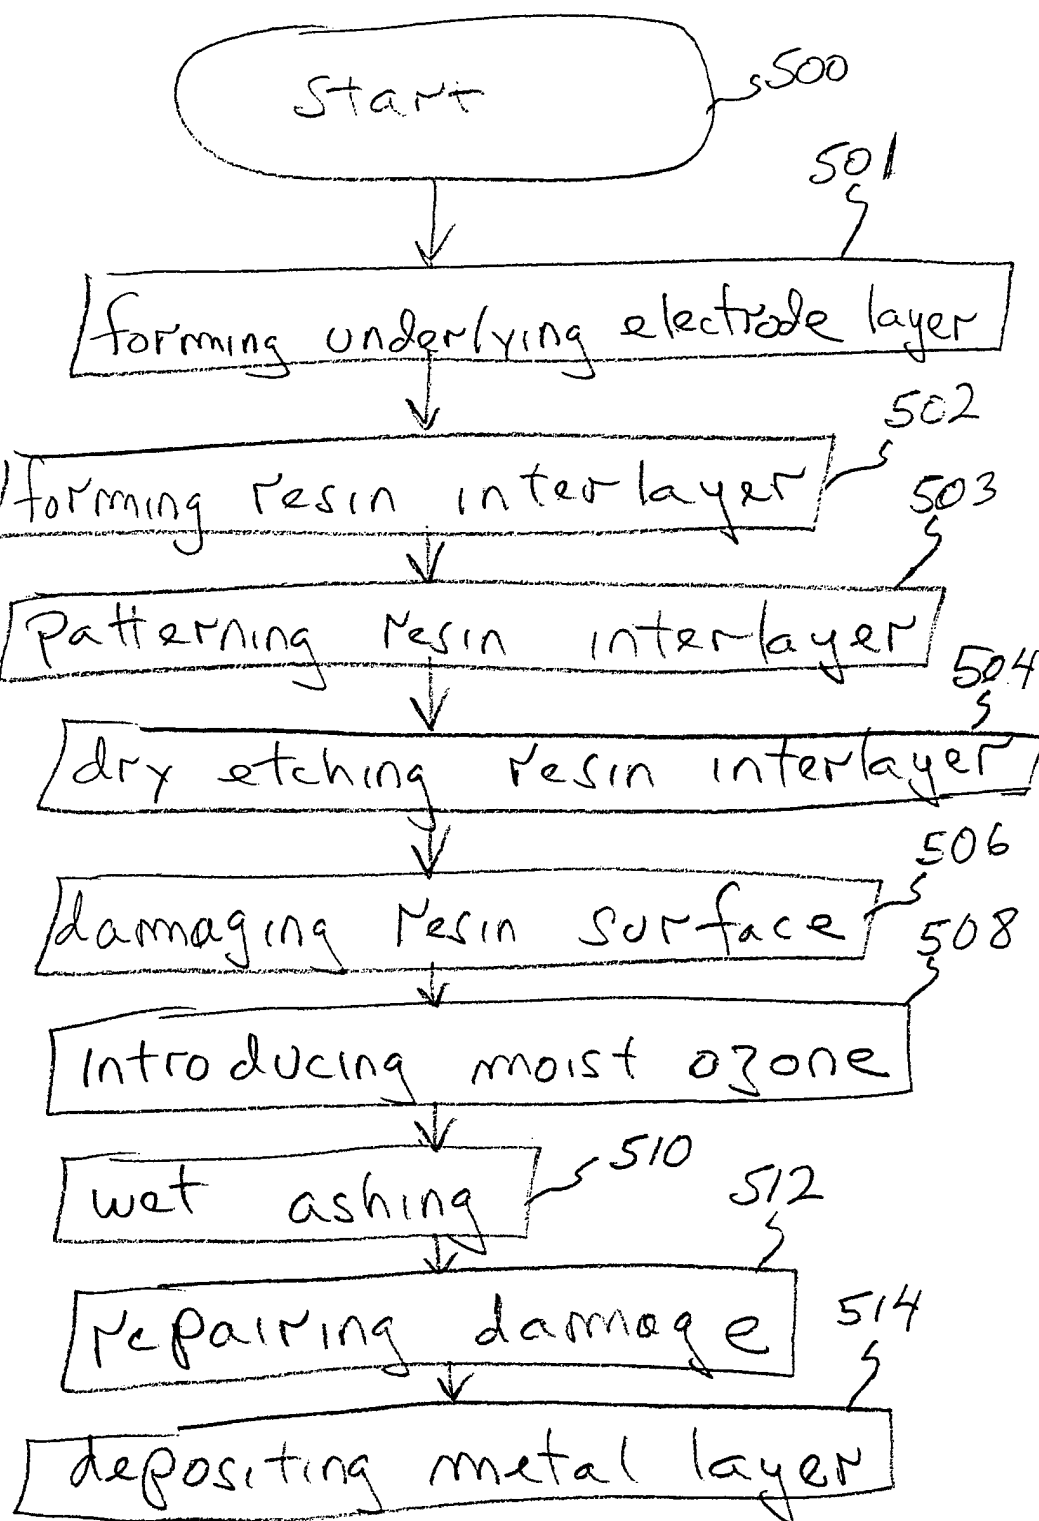 start
500
501
forming underlying electrode layer
502
forming resin interlayer
503
patterning resin interlayer
504
dry etching resin interlayer
506
damaging resin surface
508
introducing moist ozone
wet ashing
510
512
repairing damage
514
depositing metal layer